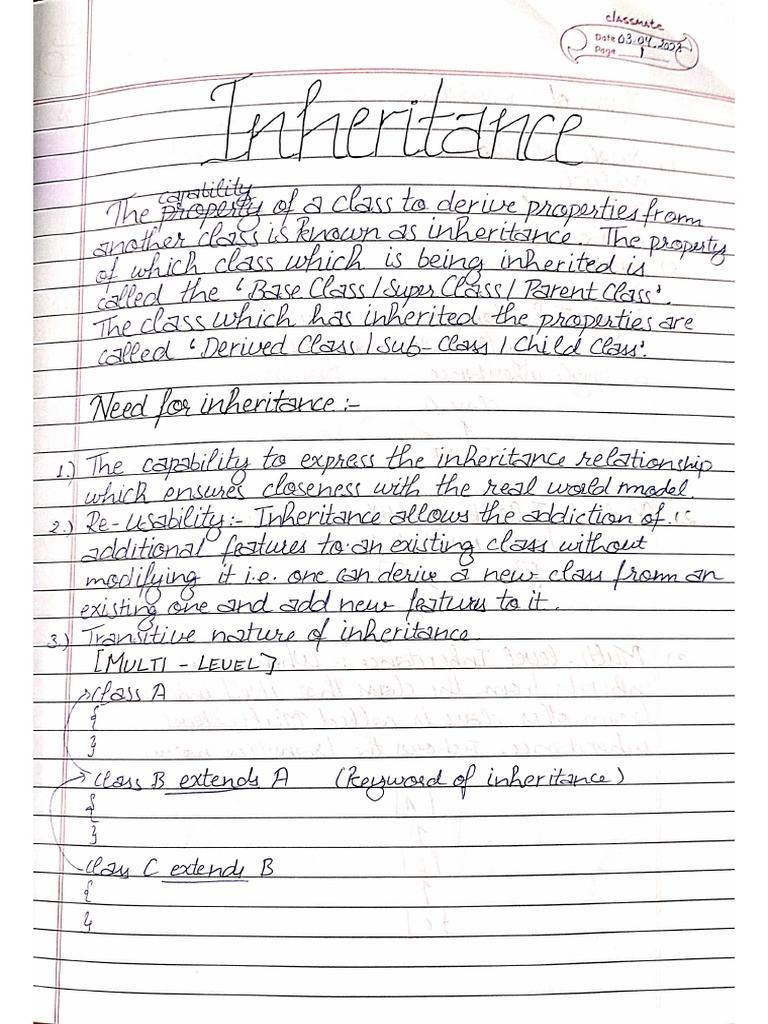 classmate
Date 03.04.2023
Page 1
Inheritance
capability
The property of a class to derive properties from
another class is known as inheritance. The property
of which class which is being inherited is
called the 'Base Class / Super Class / Parent Class'.
The class which has inherited the properties are
called 'Derived Class / Sub-Class / Child Class'.
Need for inheritance :-
1.) The capability to express the inheritance relationship
which ensures closeness with the real world model.
2.) Re-Usability :- Inheritance allows the addiction of
additional features to an existing class without
modifying it i.e. one can derive a new class from an
existing one and add new features to it.
3.) Transitive nature of inheritance.
[MULTI - LEVEL]
class A
{
}
class B extends A (Keyword of inheritance)
{
}
class C extends B
{
}